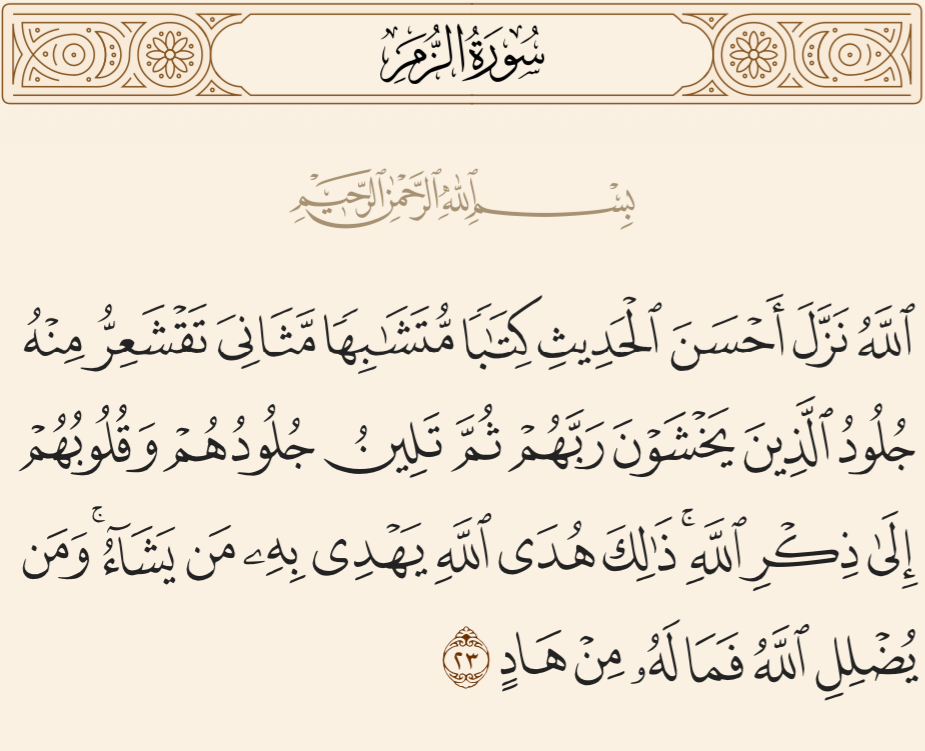 سُورَةُ الزُّمَرِ
بِسْمِ ٱللَّهِ ٱلرَّحْمَٰنِ ٱلرَّحِيمِ
ٱللَّهُ نَزَّلَ أَحْسَنَ ٱلْحَدِيثِ كِتَٰبًا مُّتَشَٰبِهًا مَّثَانِىَ تَقْشَعِرُّ مِنْهُ
جُلُودُ ٱلَّذِينَ يَخْشَوْنَ رَبَّهُمْ ثُمَّ تَلِينُ جُلُودُهُمْ وَقُلُوبُهُمْ
إِلَىٰ ذِكْرِ ٱللَّهِ ۚ ذَٰلِكَ هُدَى ٱللَّهِ يَهْدِى بِهِۦ مَن يَشَآءُ ۚ وَمَن
يُضْلِلِ ٱللَّهُ فَمَا لَهُۥ مِنْ هَادٍ ٢٣